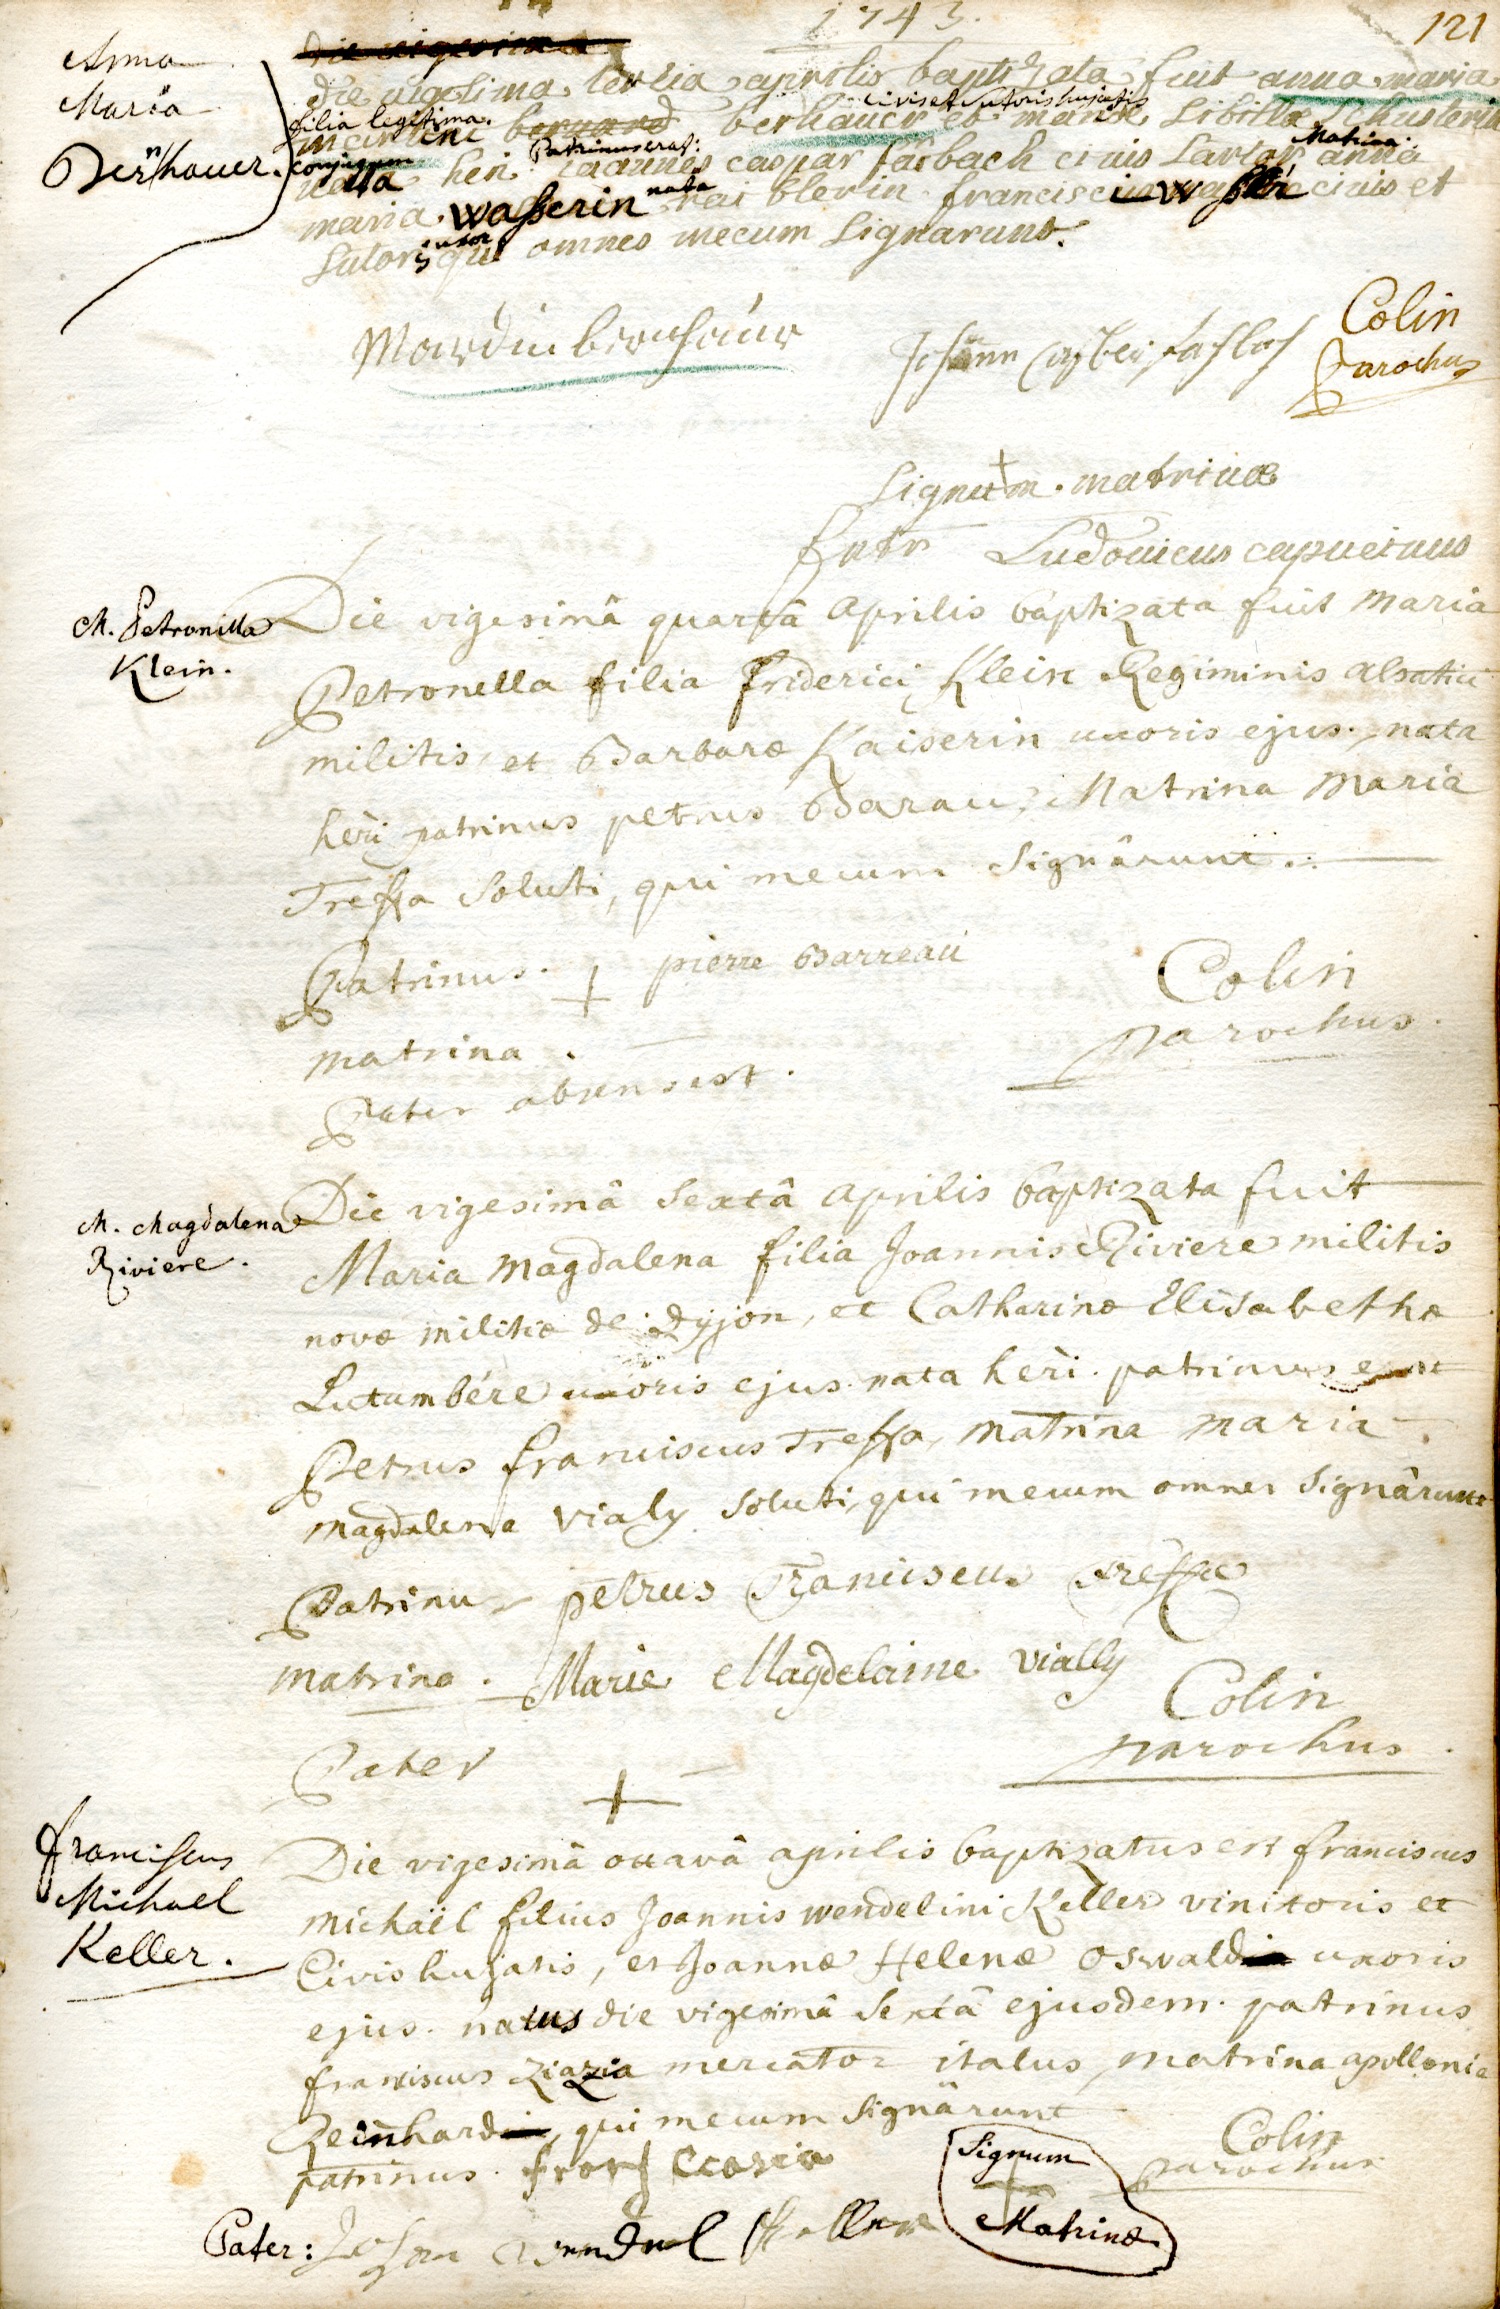 1743.
121
Anna
Maria
Bernhauer.
die vigesima
die vigesima tertia aprilis baptizata fuit anna maria
filia legitima civis et sutoris hujatis
martini bernard berhauer et mariæ Sibillæ Schusterin
conjugum Patrinus erat: Matrina
nata heri joannes caspar farbach civis Sartor anna
maria wasserin nata francisci civis et
sutoris uxor qui omnes mecum Signarunt.
Mardin
Johann
Colin
Parochus
Signum + matrinæ
fratr Ludovicus capucinus
M. Petronilla
Klein.
Die vigesimâ quartâ Aprilis baptizata fuit Maria
Petronella filia friderici Klein Regiminis alsatici
militis, et Barbaræ Kaiserin uxoris ejus. nata
heri patrinus petrus Barau, Matrina Maria
Treffa soluti, qui mecum signârunt.
Patrinus. + pierre Barreau
Colin
parochus.
matrina.
Pater absens est.
M. Magdalena
Riviere.
Die vigesimâ sextâ Aprilis baptizata fuit
Maria Magdalena filia Joannis Riviere militis
novæ militiæ de dyjon, et Catharinæ Elisabethæ
Lutambére uxoris ejus. nata heri. patrinus erat
Petrus franciscus Treffa, Matrina Maria
Magdalena Vialy soluti, qui mecum omnes signârunt
Patrinus petrus Franciscus treffa
matrina. Marie Magdelaine vially
Colin
parochus.
Pater +
Franciscus
Michael
Keller.
Die vigesimâ octavâ aprilis baptizatus est franciscus
michaël filius Joannis wendelini Keller vinitoris et
Civis hujatis, et Joannæ Helenæ Oswald uxoris
ejus. natus die vigesimâ sextâ ejusdem. patrinus
franciscus ziazia mercator italus, matrina apollonia
Reinhard, qui mecum signârunt
patrinus.
Signum
+
Matrinæ
Colin
Parochus
Pater: Johan Wendel Keller